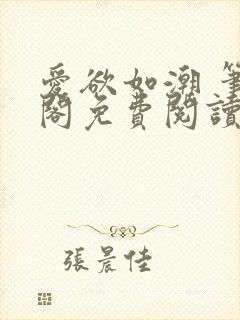 愛欲如潮 筆
閣免費閱讀
張晨佳